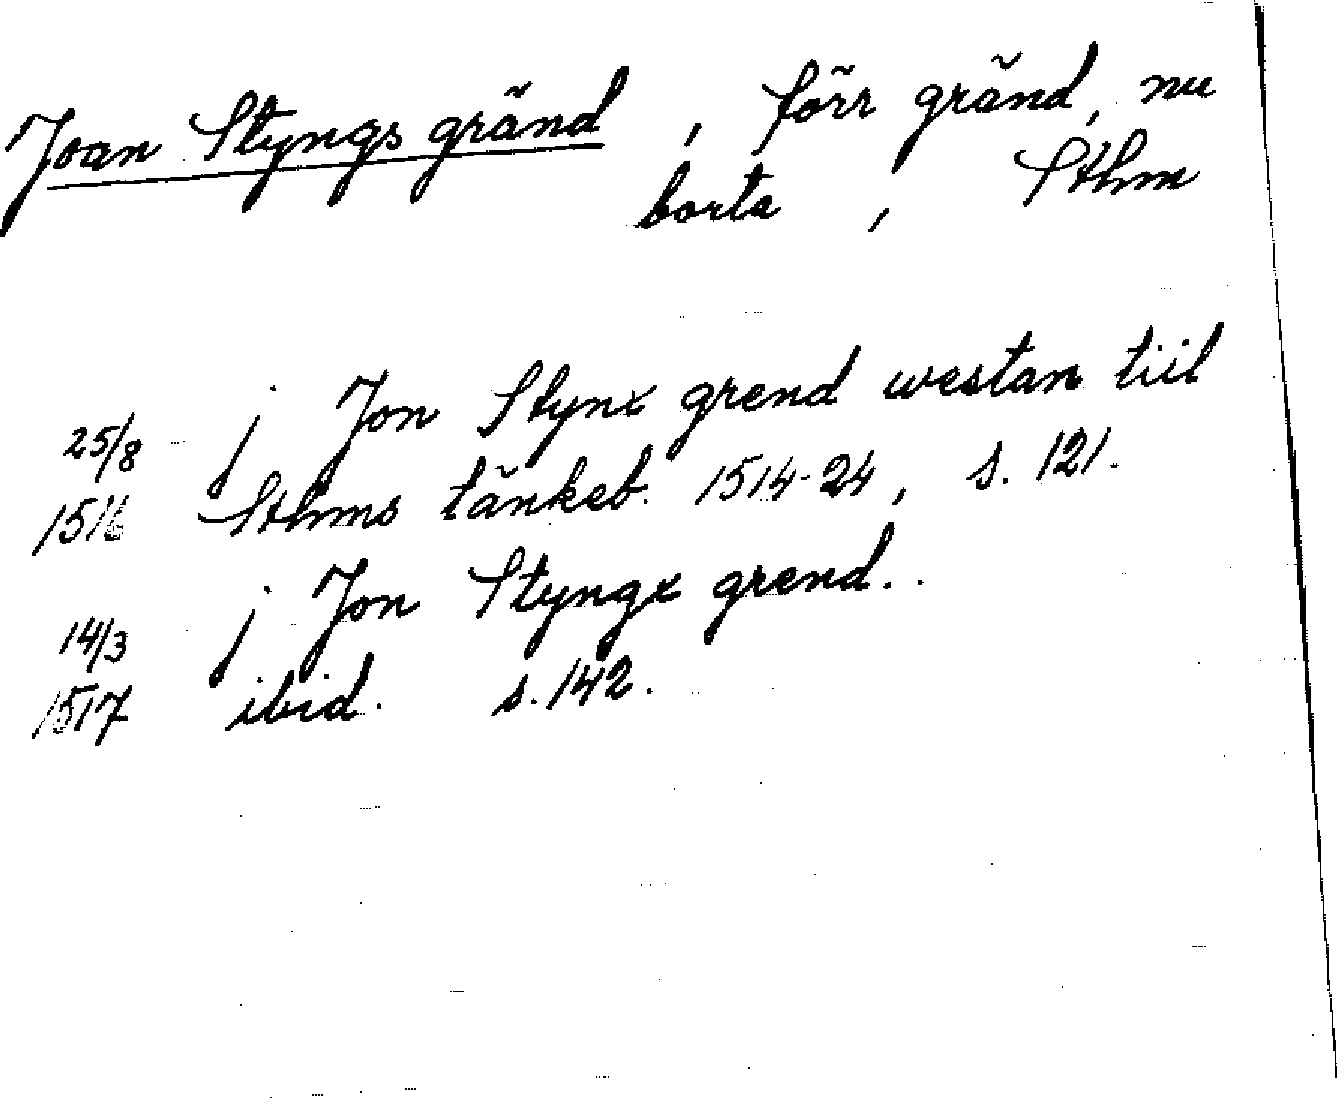 Joan Styngs gränd, förr gränd, nu
borta, Sthm
25/8 j Jon Stynx grend westan tiil
1516 Sthms tänkeb. 1514-24, s. 121.
14/3 j Jon Styngx grend..
1517 ibid. s. 142.